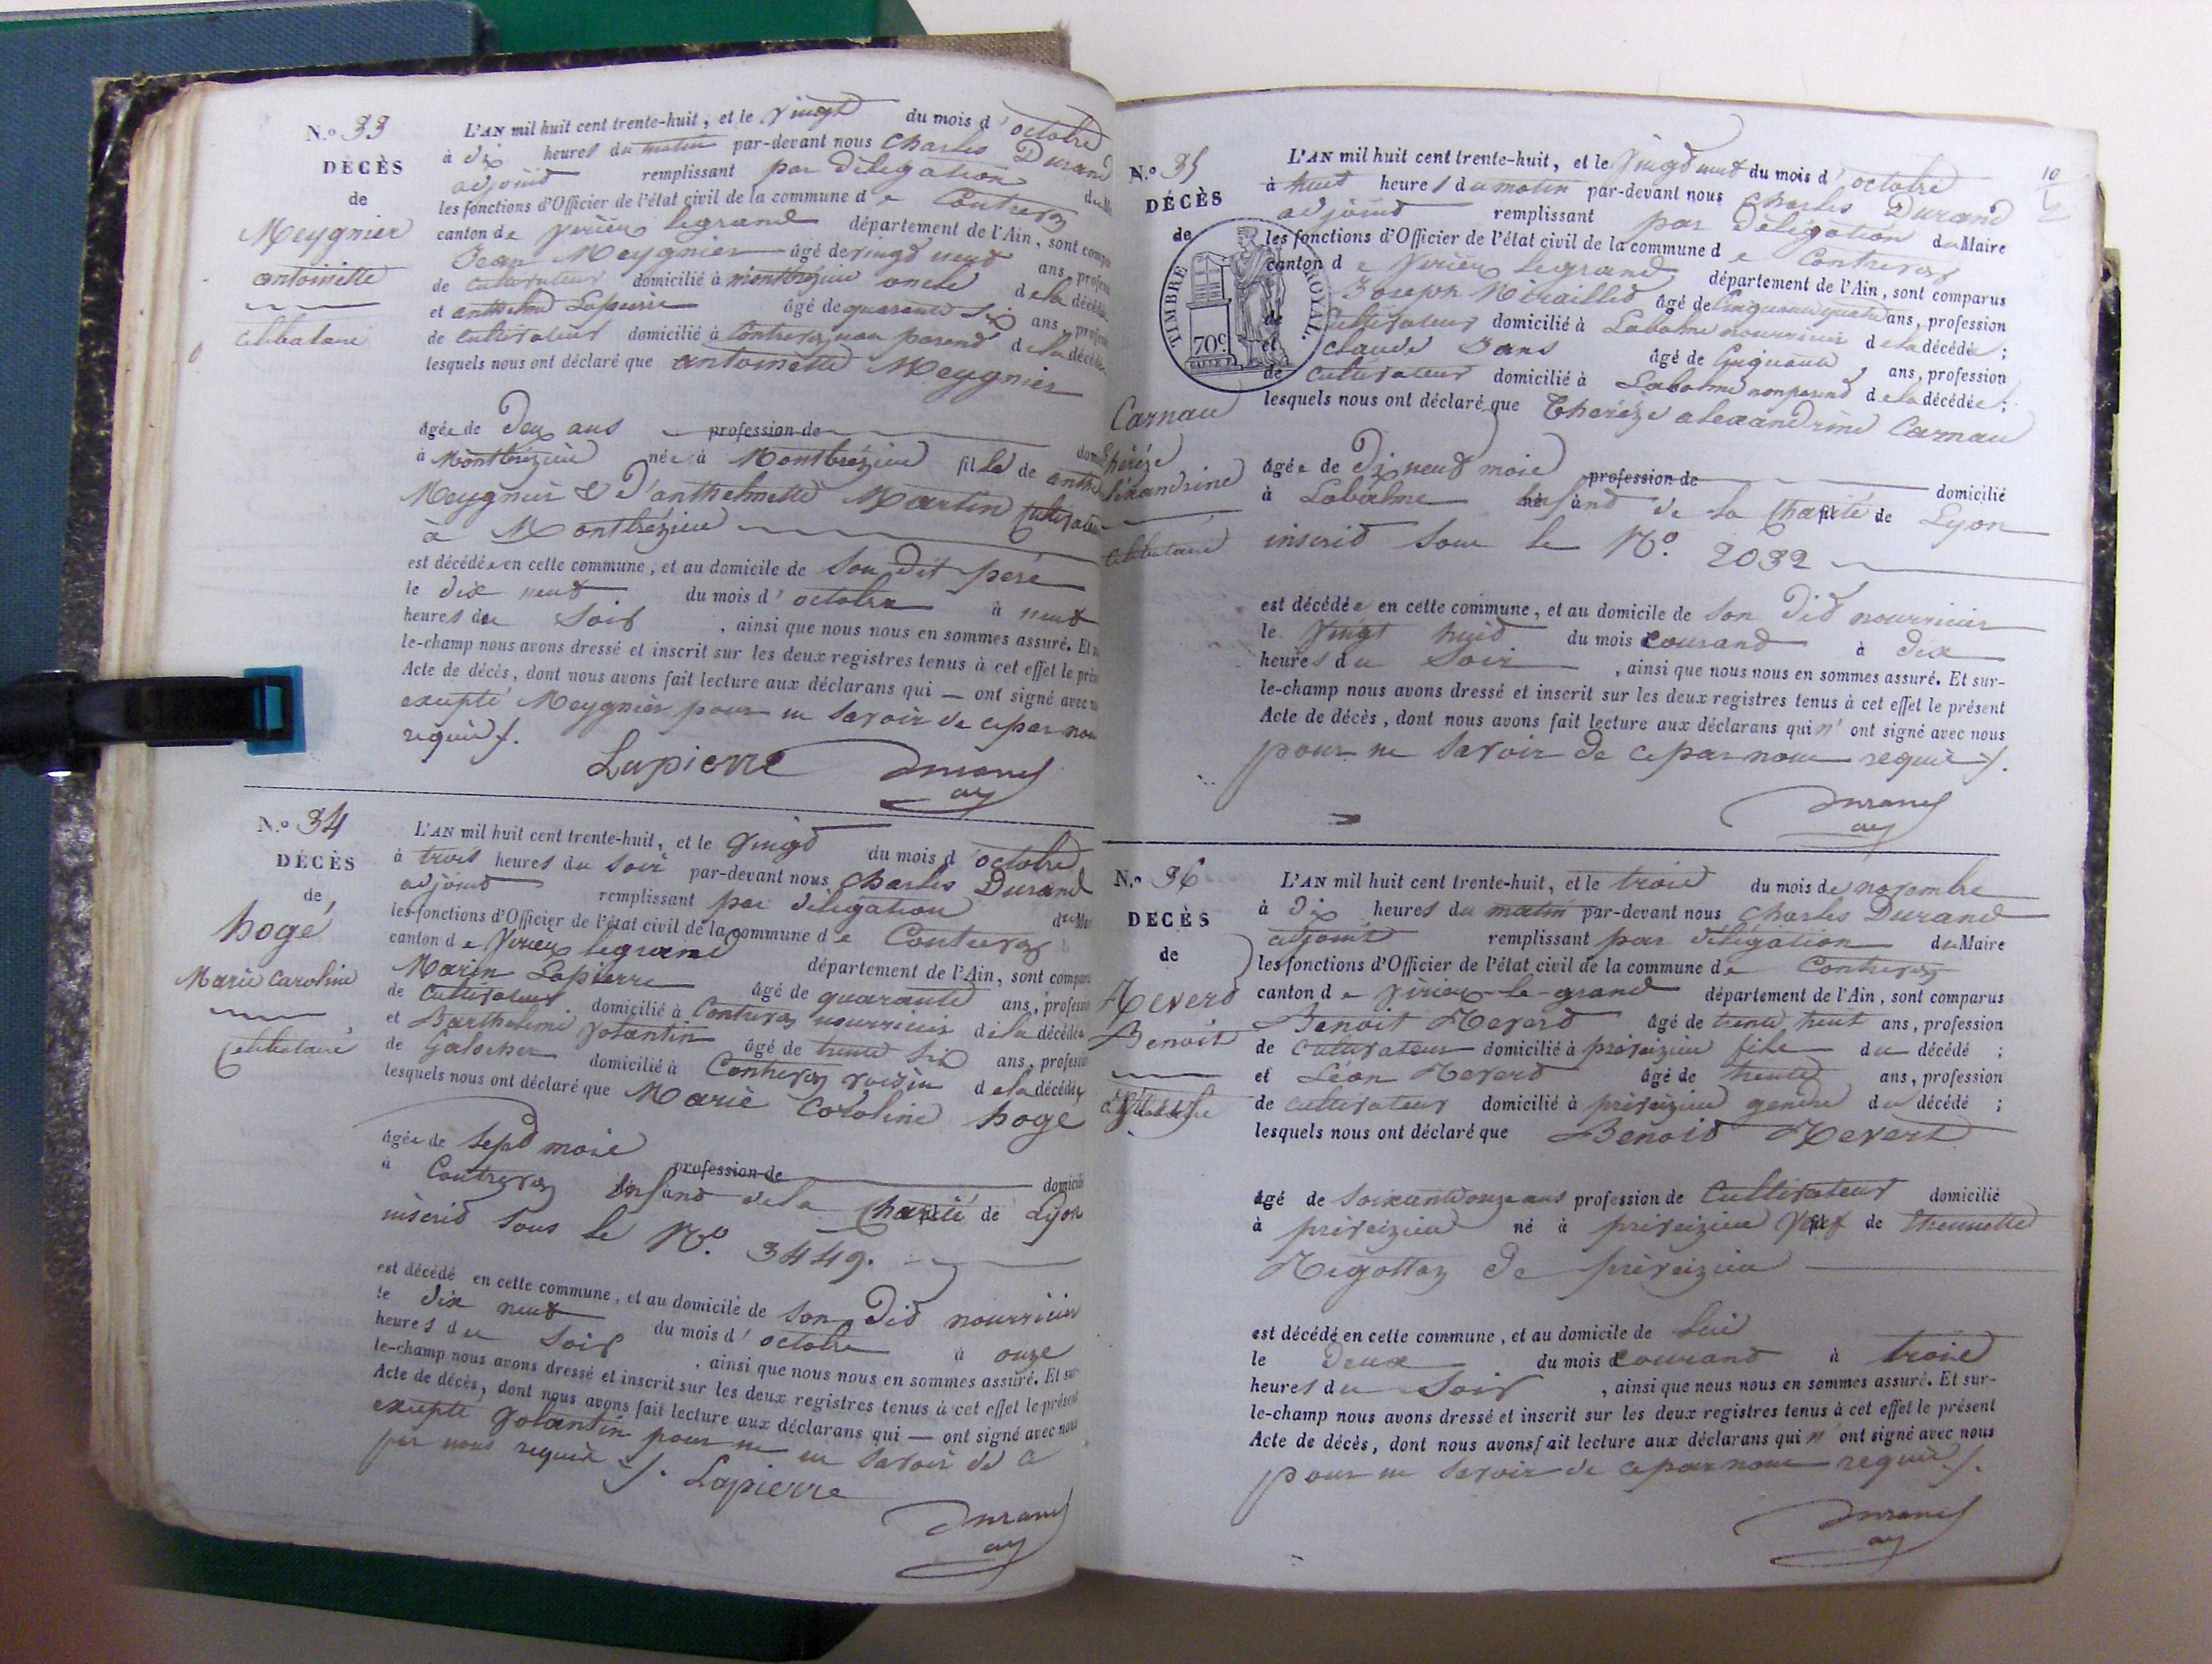 N.o 33
DÉCÈS
de
Meygnier
antoinette
celibataire
L'AN mil huit cent trente-huit, et le vingt du mois d'octobre
à dix heures du matin par-devant nous Charles Durand
adjoind remplissant par Délégation du
les fonctions d'Officier de l'état civil de la commune de Contrevoz
canton de Virieu legrand département de l'Ain, sont
Jean Meygnier âgé de vingd neuf ans,
de cultivateur domicilié à montbrézieu oncle de la
et anthelme Lapierre âgé de quarante six ans,
de cultivateur domicilié à Contrevoz non parend de la
lesquels nous ont déclaré que antoinette Meygnier
âgée de Deux ans profession de
à Montbrézieu née à Montbrézieu fille de
Meygnier & D'anthelmette Martin
à Montbrézieu
est décédée en cette commune, et au domicile de Son Dit père
le dix neuf du mois d'octobre à neuf
heures du Soir, ainsi que nous nous en sommes assuré. Et
le-champ nous avons dressé et inscrit sur les deux registres tenus à cet effet le
Acte de décès, dont nous avons fait lecture aux déclarans qui — ont signé avec
exepté Meygnier pour ne Savoir de ce par nous
requis /.
Lapierre Durand
adj
N.o 34
DÉCÈS
de
hogé
Marie Caroline
Celibataire
L'AN mil huit cent trente-huit, et le Vingd du mois d'octobre
à trois heures du Soir par-devant nous Charles Durand
adjoind remplissant par délégation du
les fonctions d'Officier de l'état civil de la commune de Contrevoz
canton de Virieu legrand département de l'Ain, sont
Marin Lapierre âgé de quarante ans,
de Cultivateur domicilié à Contrevoz nourricier de la décédée
et Barthelemi golantin âgé de trente Six ans,
de Galocher domicilié à Contrevoz voisin de la décédée
lesquels nous ont déclaré que Marie Caroline hogé
âgée de Sept mois profession de
à Contrevoz Enfand de la Charité de Lyon
inscrid Sous le No. 3449.
est décédé en cette commune, et au domicile de Son Did nourricier
le dix neuf du mois d'octobre à onze
heures du Soir, ainsi que nous nous en sommes assuré. Et sur
le-champ nous avons dressé et inscrit sur les deux registres tenus à cet effet le présent
Acte de décès, dont nous avons fait lecture aux déclarans qui — ont signé avec nous
exepté golantin pour ne Savoir de ce
par nous requis /. Lapierre
Durand
adj
10
N.o 35
DÉCÈS
de
TIMBRE ROYAL.
70c
Carnau
Thérèze
alexandrine
celibataire
L'AN mil huit cent trente-huit, et le Vingd neuf du mois d'octobre
à huit heures du matin par-devant nous Charles Durand
adjoind remplissant par Délégation du Maire
les fonctions d'Officier de l'état civil de la commune de Contrevoz
canton de Virieu legrand département de l'Ain, sont comparus
Joseph Miraillet âgé de Cinquante quatre ans, profession
de Cultivateur domicilié à Labalme nourricier de la décédée;
et claude Jans âgé de Cinquante ans, profession
de Cultivateur domicilié à Labalme non parend de la décédée;
lesquels nous ont déclaré que Thérèze alexandrine Carnau
âgée de Dix neuf mois profession de domicilié
à Labalme Enfand de la Charité de Lyon
inscrid Sous le No. 2032
est décédée en cette commune, et au domicile de Son Did nourricier
le Vingt huid du mois courand à dix
heures du Soir, ainsi que nous nous en sommes assuré. Et sur-
le-champ nous avons dressé et inscrit sur les deux registres tenus à cet effet le présent
Acte de décès, dont nous avons fait lecture aux déclarans qui n'ont signé avec nous
pour ne Savoir de ce par nous requis /.
Durand
adj
N.o 36
DÉCÈS
de
Benoit
L'AN mil huit cent trente-huit, et le trois du mois de novembre
à Dix heures du matin par-devant nous Charles Durand
adjoint remplissant par délégation du Maire
les fonctions d'Officier de l'état civil de la commune de Contrevoz
canton de Virieu-le-grand département de l'Ain, sont comparus
Benoit Revert âgé de trente huit ans, profession
de cultivateur domicilié à préveizieu fils du décédé;
et Léon Reverd âgé de trente ans, profession
de cultivateur domicilié à préveizieu gendre du décédé;
lesquels nous ont déclaré que Benoid Revert
âgé de Soixante onze ans profession de Cultivateur domicilié
à préveizieu né à préveizieu Veuf de
Rigottaz de préveizieu
est décédé en cette commune, et au domicile de Lui
le Deux du mois courand à trois
heures du Soir, ainsi que nous nous en sommes assuré. Et sur-
le-champ nous avons dressé et inscrit sur les deux registres tenus à cet effet le présent
Acte de décès, dont nous avons fait lecture aux déclarans qui n'ont signé avec nous
pour ne Savoir de ce par nous requis /.
Durand
adj